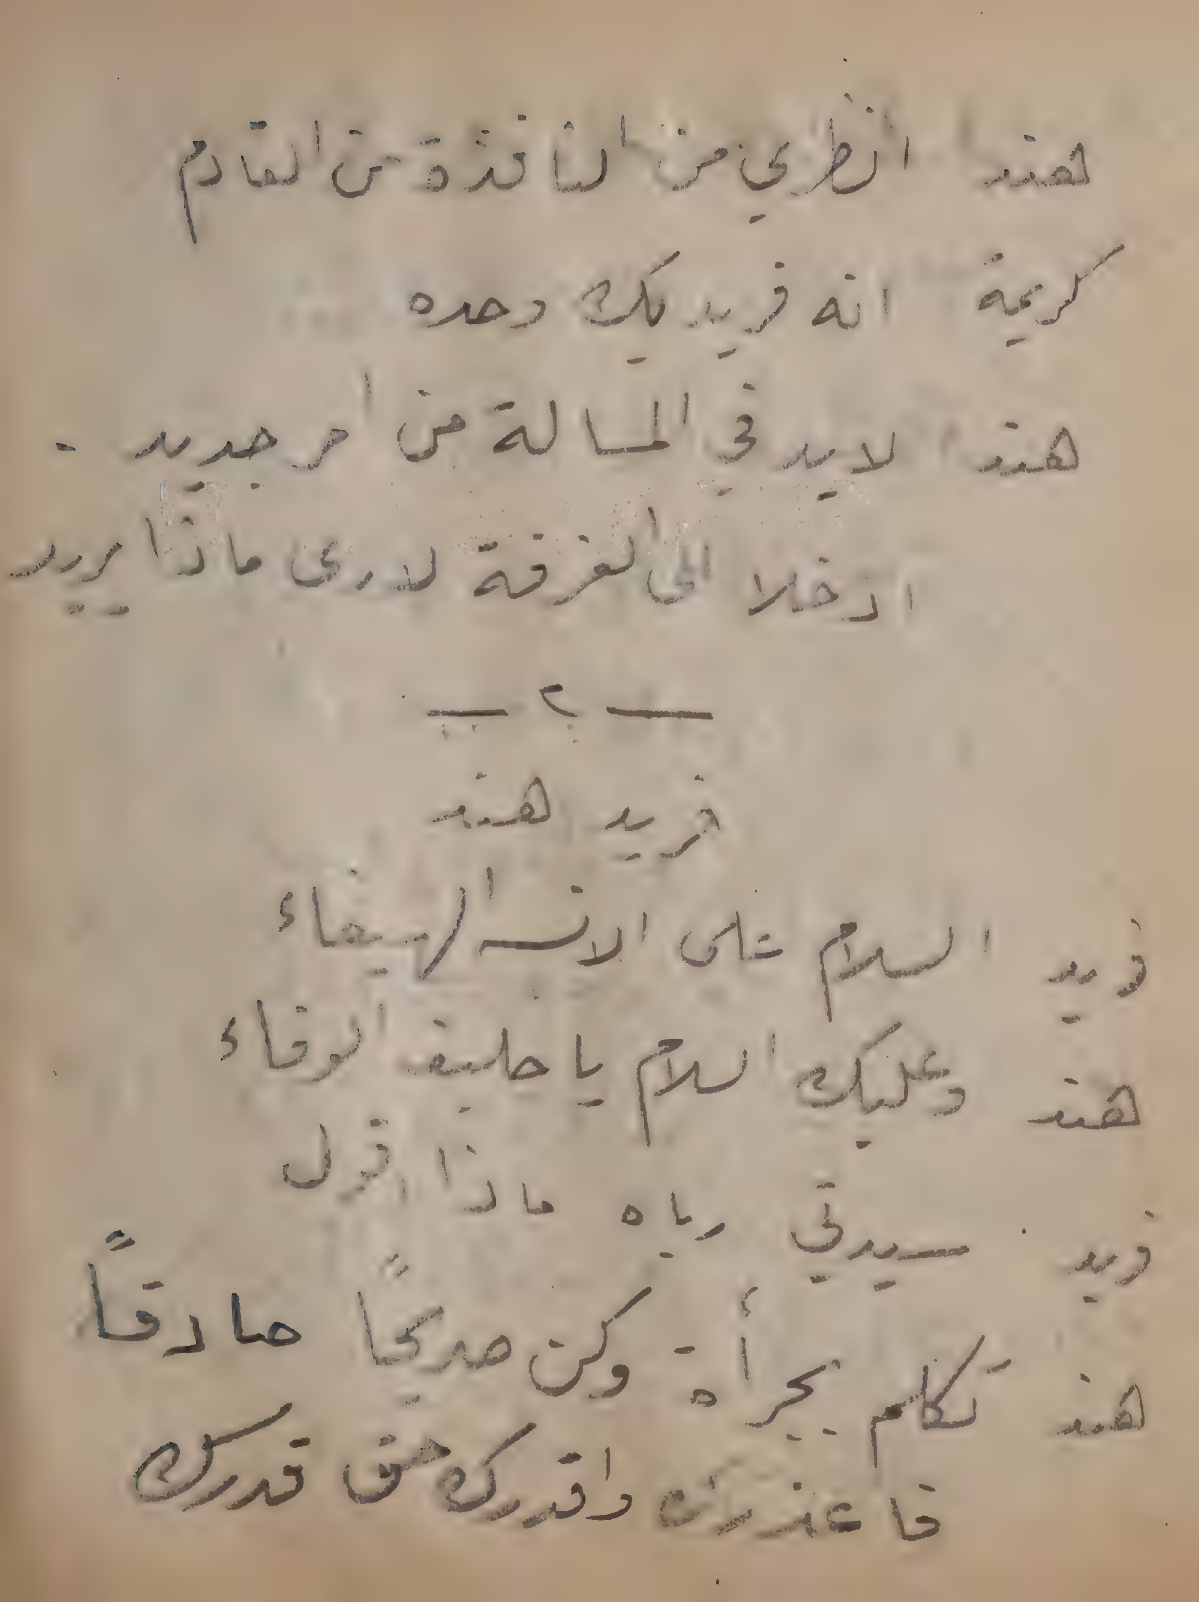 هند انظري من النافذة من القادم
كريمة انه فريد بك وحده
هند لابد في المسالة من امر جديد .
ادخلا الى الغرفة لارى ماذا يريد
— ٢ —
فريد هند
فريد السلام على الانسه الهيفاء
هند وعليك السلام يا حليف الوفاء
فريد سيدتي رباه ماذا اقول
هند تكلم بجرأة وكن صريحًا صادقاً
فاعذرك واقدرك حق قدرك